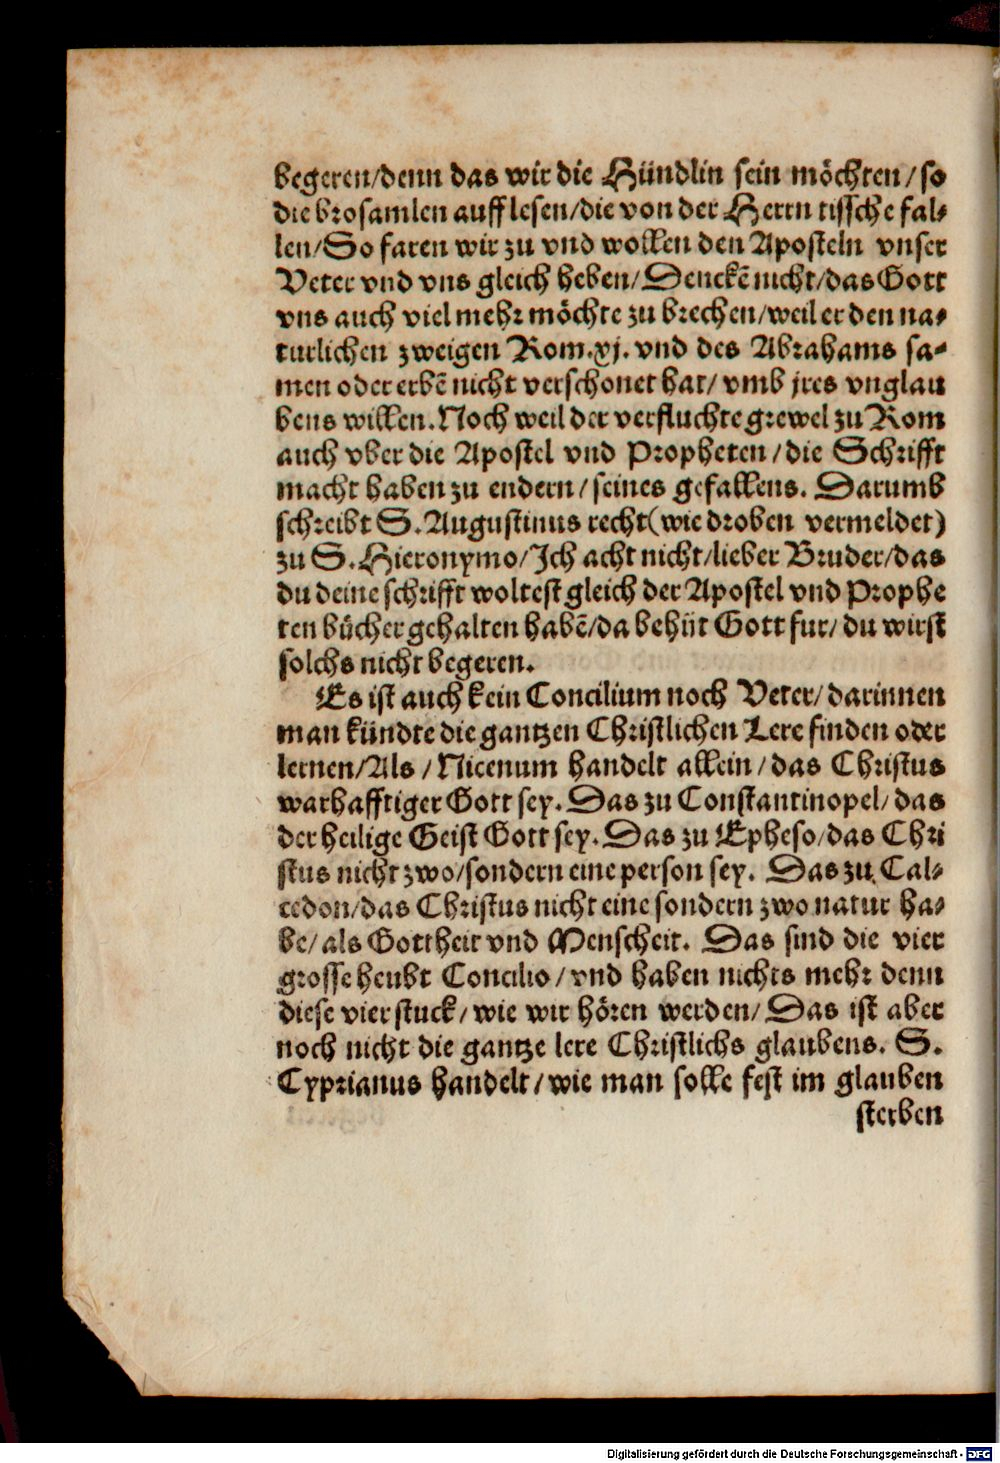 begeren/denn das wir die Hündlin sein möchten/so
die brosamlen auff lesen/die von der Herrn tissche fal-
len/So faren wir zu vnd wollen den Aposteln vnser
Veter vnd vns gleich heben/Denckē nicht/das Gott
vns auch viel mehr möchte zu brechen/weil er den na-
turlichen zweigen Rom.xj. vnd des Abrahams sa-
men oder erbē nicht verschonet hat/ vmb jres vnglau
bens willen. Noch weil der verfluchte grewel zu Rom
auch vber die Apostel vnd Propheten/die Schrifft
macht haben zu endern/seines gefallens. Darumb
schreibt S. Augustinus recht(wie droben vermeldet)
zu S. Hieronymo/Ich acht nicht/lieber Bruder/das
du deine schrifft woltest gleich der Apostel vnd Prophe
ten bücher gehalten habē/da behüt Gott fur/ du wirst
solchs nicht begeren.
Es ist auch kein Concilium noch Veter/darinnen
man kündte die gantzen Christlichen Lere finden oder
lernen/Als/Nicenum handelt allein/das Christus
warhafftiger Gott sey. Das zu Constantinopel/das
der heilige Geist Gott sey. Das zu Epheso/das Chri
stus nicht zwo/sondern eine person sey. Das zu Cal-
cedon/das Christus nicht eine sondern zwo natur ha-
be/als Gottheit vnd Menscheit. Das sind die vier
grosse heubt Concilio/vnd haben nichts mehr denn
diese vier stuck/wie wir hören werden/Das ist aber
noch nicht die gantze lere Christlichs glaubens. S.
Cyprianus handelt/wie man solle fest im glauben
sterben
Digitalisierung gefördert durch die Deutsche Forschungsgemeinschaft - DFG